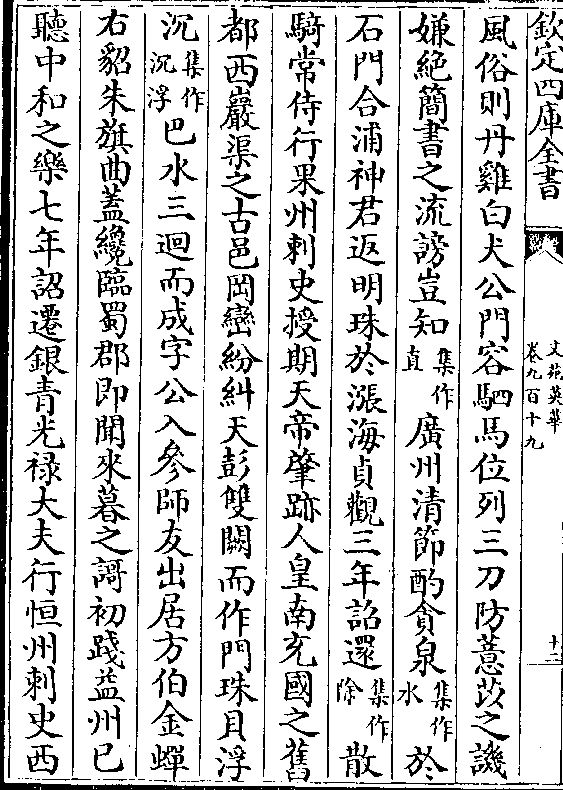 欽定四庫全書
文苑英華
卷九百十九
十二
風俗則丹雞白犬公門容駟馬位列三刀防薏苡之譏
嫌絶簡書之流謗豈知集作直廣州清節酌貪泉集作水於
石門合浦神君返明珠於漲海貞觀三年詔還集作除散
騎常侍行果州刺史授期天帝肇跡人皇南充國之舊
都西巖渠之古邑岡巒紛糾天彭雙闕而作門珠貝浮
沉集作沉浮巴水三迴而成字公入參師友出居方伯金蟬
右貂朱旗曲蓋纔臨蜀郡即聞來暮之謌初踐益州已
聽中和之樂七年詔遷銀青光禄大夫行恒州刺史西